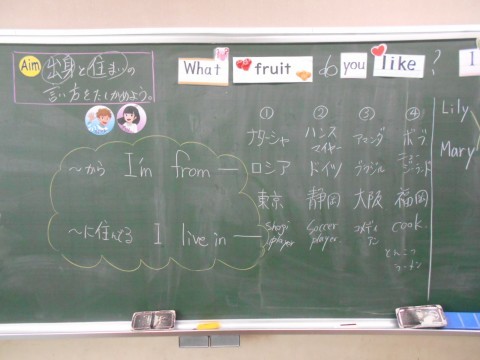 Aim 出身と住まいの
言い方をたしかめよう。
What fruit do you like ? I
〜から I'm from —
〜に住んでる I live in —
① ② ③ ④
ナターシャ ハンス アマンダ ボブ
マイヤー
ロシア ドイツ ブラジル
東京 静岡 大阪 福岡
shogi player soccer player コメディアン cook
とんこつ
ラーメン
Lily
Mary